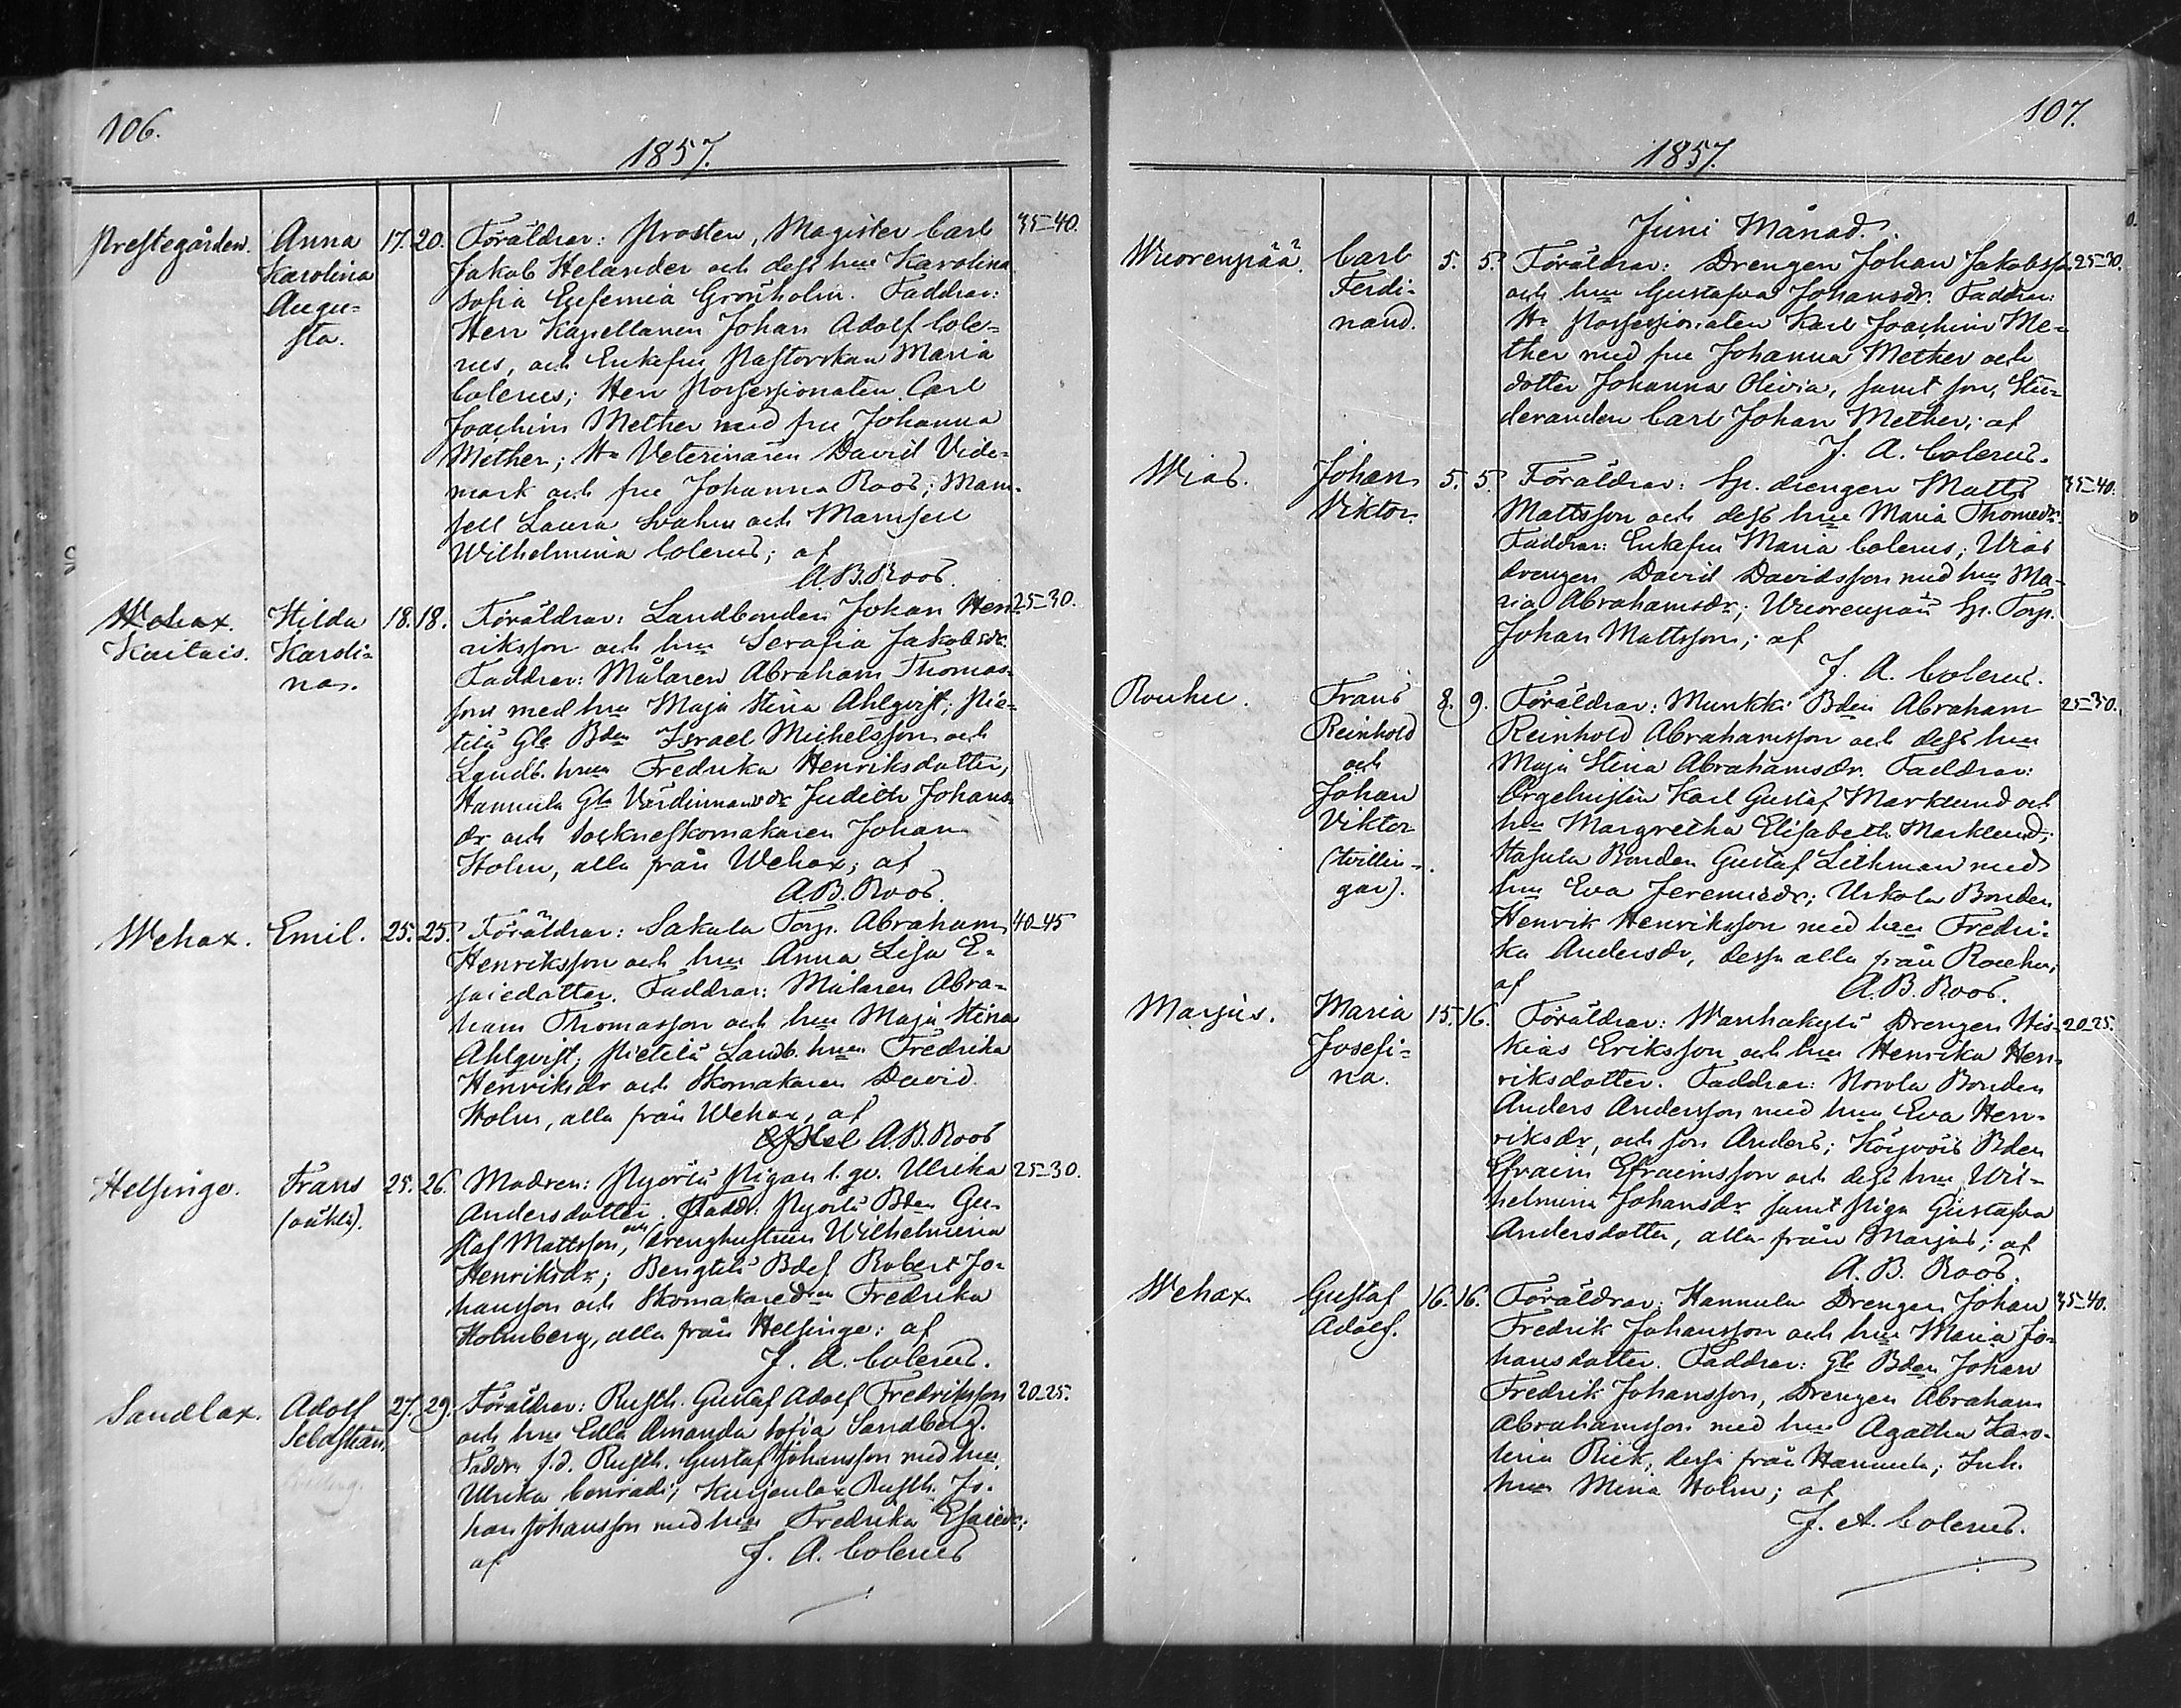 106.
1857.
Prestegården. Anna 17. 20. Föräldrar: Prosten, Magister Carl 35-40.
Karolina Jakob Helander och dess hu Karolina
Augu- Sofia Eufemia Grönholm. Faddrar:
sta. Herr Kapellanen Johan Adolf Cole-
rus, och Enkefru Pastorskan Maria
Colerus; Herr Possessionaten Carl
Joachim Mether med fru Johanna
Mether; Hr Veterinären David Vide-
mark och fru Johanna Roos; Mam-
sell Laura Svahn och Mamsell
Wilhelmina Colerus; af
A. B. Roos.
Wehax. Hilda 18. 18. Föräldrar: Landbonden Johan Hen- 25-30.
Kaitais. Karoli- riksson och hu Serafia Jakobsdr.
na. Faddrar: Målaren Abraham Thomas-
son med hu Maja Stina Ahlqvist; Pie-
tilä Gle Bden Israel Michelsson och
Landb. hun Fredrika Henriksdotter,
Hannula Gla Judith Johans-
dr och Sockneskomakaren Johan
Holm, alla från Wehax; af
A. B. Roos.
Wehax. Emil. 25. 25. Föräldrar: Sakula Torp. Abraham 40-45
Henriksson och hu Anna Lisa E-
saiedotter. Faddrar: Målaren Abra-
ham Thomasson och hu Maja Stina
Ahlqvist; Pietilä Landb. hun Fredrika
Henriksdr och Skomakaren David
Holm, alla från Wehax, af
A. B. Roos
Helsinge. Frans 25. 26. Modren: Pyörli Pigan l. gr. Ulrika 25-30.
(oäkta). Andersdotter. Fadd: Pyörli Bden Gu-
staf Mattsson, och drenghustrun Wilhelmina
Henriksdr; Bengtilä Bdes. Robert Jo-
hansson och Skomakaredn Fredrika
Holmberg, alla från Helsinge; af
J. A. Colerus.
Sandlax. Adolf 27. 29. Föräldrar: Rusth. Gustaf Adolf Fredriksson 20-25.
Sebastian och hu Edla Amanda Sofia Sandberg.
Faddrar f.d. Rusth. Gustaf Johansson med hu
Ulrika Conradi; Kurjenlax Rusth. Jo-
han Johansson med hu Fredrika Esaiedr;
af J. A. Colerus
107.
1857.
Juni Månad.
Wuorenpää. Carl 5. 5. Föräldrar: Drengen Johan Jakobsson 25-30.
Ferdi- och hu Gustafva Johansdr. Faddrar:
nand. Hr Possessionaten Karl Joachim Me-
ther med fru Johanna Mether och
dotter Johanna Olivia, samt son, Stu-
deranden Carl Johan Mether; af
J. A. Colerus.
Wias. Johan 5. 5. Föräldrar: Sp. drengen Matts 35-40.
Viktor. Mattsson och dess hu Maria Thomedr.
Faddrar: Enkefru Maria Colerus; Wias
drengen David Davidsson med hu Ma-
ria Abrahamsdr; Wuorenpää Sp. Torp.
Johan Mattsson; af
J. A. Colerus.
Rouhu. Frans 8. 9. Föräldrar: Munkki Bden Abraham 25-30.
Reinhold Reinhold Abrahamsson och dess hu
och Maja Stina Abrahamsdr. Faddrar:
Johan Orgelnisten Karl Gustaf Marklund och
Viktor hu Margretha Elisabeth Marklund;
(tvillin- Bonden Gustaf Lithman med
gar). hu Eva Jeremiedr; Uskola Bonden
Henrik Henriksson med hu Fredri-
ka Andersdr, dessa alla från Rouhu;
af A. B. Roos.
Marjus. Maria 15. 16. Föräldrar: Wanhakylä Drengen His- 20-25.
Josefi- kias Eriksson och hu Henrika Hen-
na. riksdotter. Faddrar: Norola Bonden
Anders Andersson med hu Eva Hen-
riksdr, och son Anders; Köijvois Bden
Efraim Efraimsson och dess hu Wil-
helmina Johansdr samt Piga Gustafva
Andersdotter, alla från Marjus; af
A. B. Roos.
Wehax. Gustaf 16. 16. Föräldrar: Hannula Drengen Johan 35-40.
Adolf. Fredrik Johansson och hu Maria Jo-
hansdotter. Faddrar: Gle Bden Johan
Fredrik Johansson, Drengen Abraham
Abrahamsson med hu Agatha Karo-
lina Rick, dessa från Hannula; Inh.
hun Mina Holm; af
J. A. Colerus.